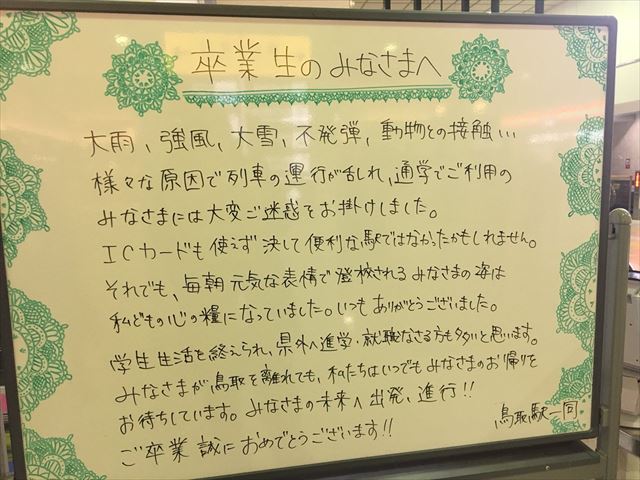 卒業生のみなさまへ
大雨、強風、大雪、不発弾、動物との接触…
様々な原因で列車の運行が乱れ、通学でご利用の
みなさまには大変ご迷惑をお掛けしました。
ICカードも使えず決して便利な駅ではなかったかもしれません。
それでも、毎朝元気な表情で登校されるみなさまの姿は
私どもの心の糧になっていました。いつもありがとうございました。
学生生活を終えられ、県外へ進学・就職なさる方も多いと思います。
みなさまが鳥取を離れても、私たちはいつでもみなさまのお帰りを
お待ちしています。みなさまの未来へ出発、進行!!
ご卒業誠におめでとうございます!!
鳥取駅一同